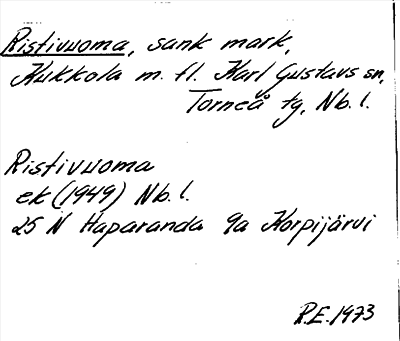 Ristivuoma, sank mark,
Kukkola m. fl. Karl Gustavs sn,
Torneå tg, Nb. l.
Ristivuoma
ek (1949) Nb. l.
25 N Haparanda 9a Korpijärvi
R.E. 1973